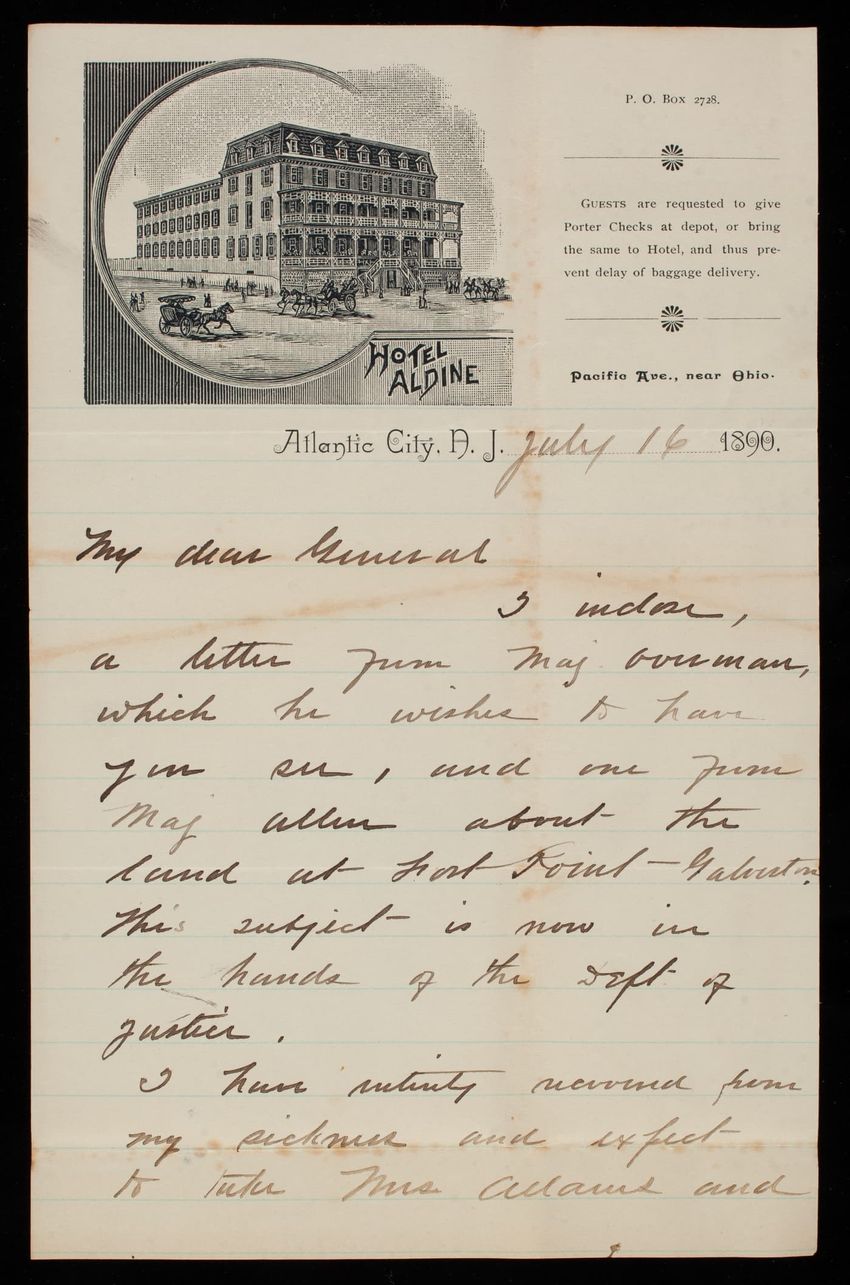 P. O. Box 2728.
Guests are requested to give
Porter Checks at depot, or bring
the same to Hotel, and thus pre-
vent delay of baggage delivery.
Pacific Ave., near Ohio.
HOTEL
ALDINE
Atlantic City, N. J. July 16 1890.
My dear General
I inclose,
a letter from Maj Overman,
which he wishes to have
you see, and one from
Maj Allen about the
land at Fort Point - Galveston.
This subject is now in
the hands of the Dept of
Justice.
I have entirely recovered from
my sickness and expect
to take Mrs Adams and